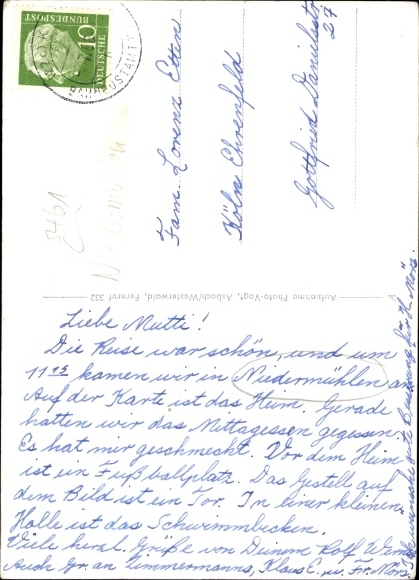 DEUTSCHE
BUNDESPOST
10
BAHNPOSTAMT
Fam. Lorenz Etten
Köln Ehrenfeld
Gottfried Danielsstr
27
5461
Niedermühlen
Aufnahme Photo-Vogt, Asbach/Westerwald, Fernruf 332
Liebe Mutti!
Die Reise war schön, und um
11 15 kamen wir in Niedermühlen an
Auf der Karte ist das Heim. Gerade
hatten wir das Mittagessen gegessen.
Es hat mir geschmeckt. Vor dem Heim
ist ein Fußballplatz. Das Gestell auf
dem Bild ist ein Tor. In einer kleinen
Holle ist das Schwimmbecken.
Viele herzl. Grüße von Deinem Rolf
Auch Gr. an Zimmermanns, Klaus E.
gute Besserung für H.